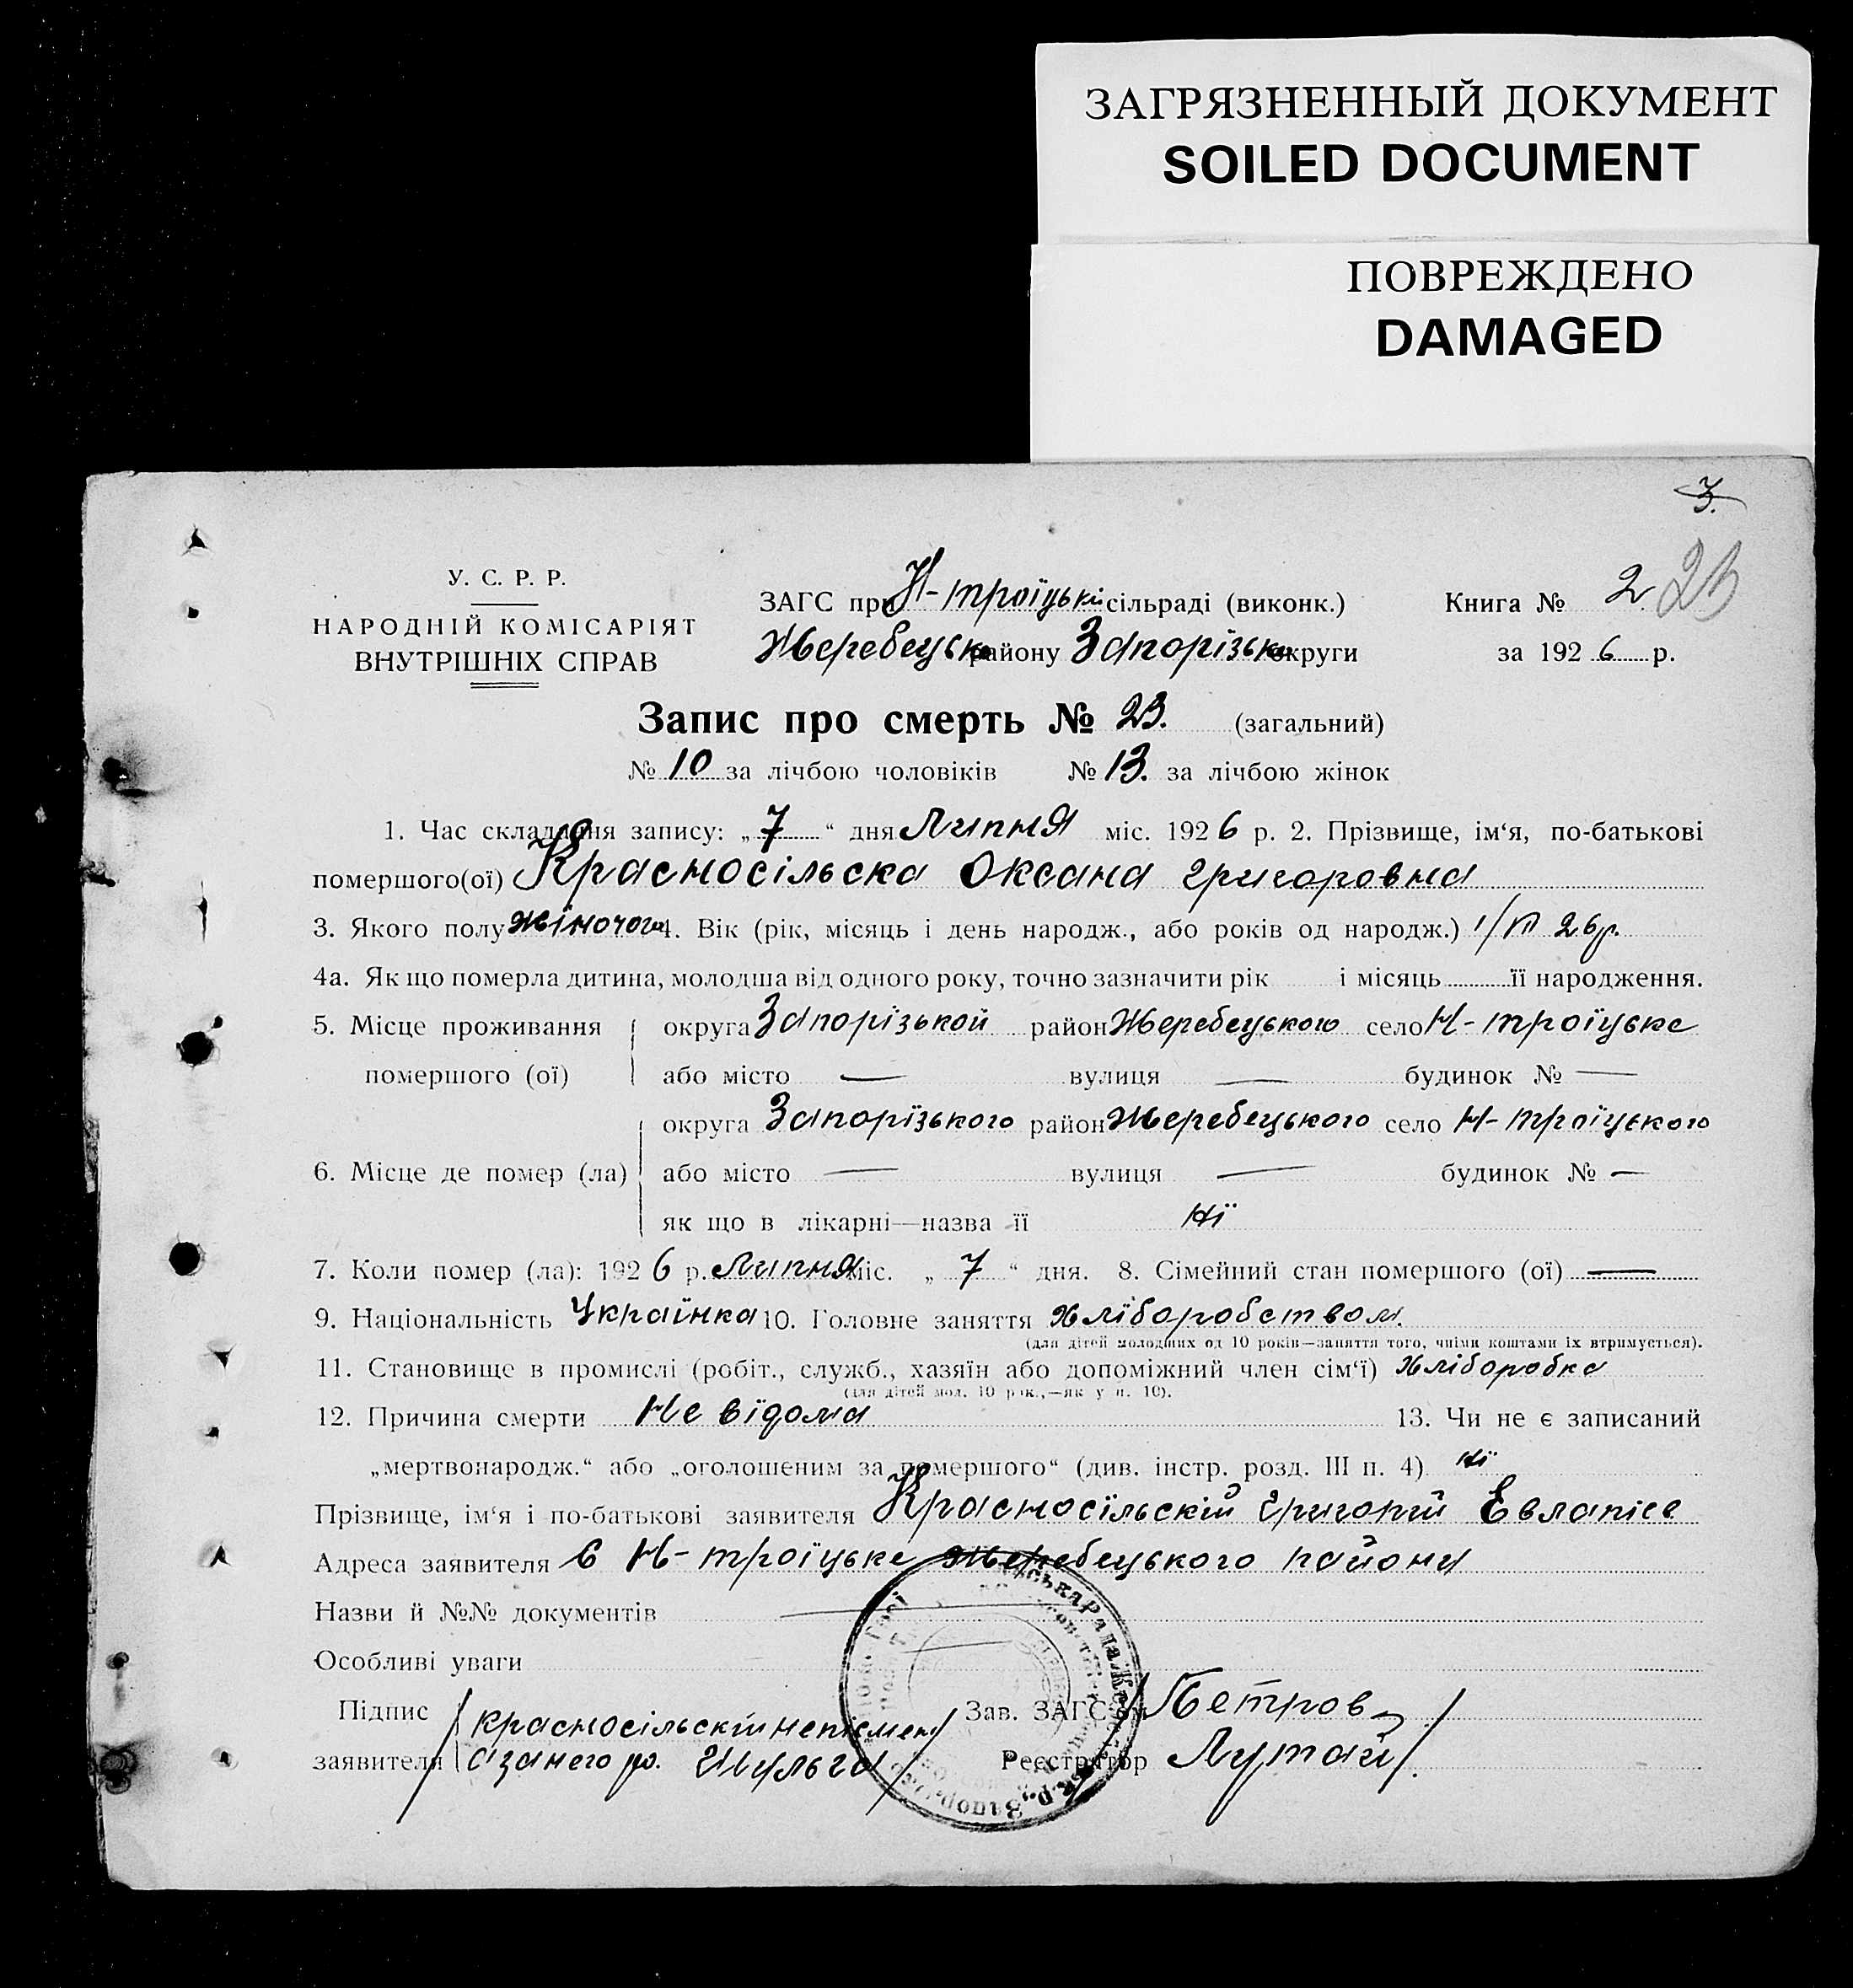 ЗАГРЯЗНЕННЫЙ ДОКУМЕНТ
SOILED DOCUMENT
ПОВРЕЖДЕНО
DAMAGED
3.
23
У. С. Р. Р.
НАРОДНІЙ КОМІСАРІЯТ
ВНУТРІШНІХ СПРАВ
ЗАГС при Н-троїцькі сільраді (виконк.)
Жеребецько району Запорізько округи
Книга № 2
за 1926 р.
Запис про смерть № 23. (загальний)
№ 10 за лічбою чоловіків № 13. за лічбою жінок
1. Час складання запису: „7“ дня Липня міс. 1926 р. 2. Прізвище, ім‘я, по-батькові
помершого(ої) Красносільска Оксана григоровна
3. Якого полу жіночого 4. Вік (рік, місяць і день народж., або років од народж.) 1/VI 26р.
4а. Як що померла дитина, молодша від одного року, точно зазначити рік і місяць її народження.
5. Місце проживання округа Запорізькой район Жеребецького село Н-троїцьке
помершого (ої) або місто — вулиця — будинок № —
округа Запорїзького район Жеребецького село Н-троїцького
6. Місце де помер (ла) або місто — вулиця — будинок № —
як що в лікарні—назва її нї
7. Коли помер (ла): 1926 р. Липня міс. „7“ дня. 8. Сімейний стан помершого (ої) —
9. Національність Українка 10. Головне заняття хлїборобством.
(для дітей молодших од 10 років—заняття того, чиїми коштами їх втримується).
11. Становище в промислі (робіт., служб., хазяїн або допоміжний член сім‘ї) хліборобка
(для дітей мол. 10 рік.,—як у п. 10).
12. Причина смерти Не вїдома 13. Чи не є записаний
„мертвонародж.“ або „оголошеним за помершого“ (див. інстр. розд. III п. 4) нї
Прізвище, ім‘я і по-батькові заявителя Красносїльскій Григорий Евлапієв
Адреса заявителя С Н-троїцьке Жеребецького района
Назви й №№ документів
Особливі уваги
Підпис /красносільскій неписмен/ Зав. ЗАГС‘ом /Петров
заявителя а занего ро. Шульга/ Реєстратор Лутай/